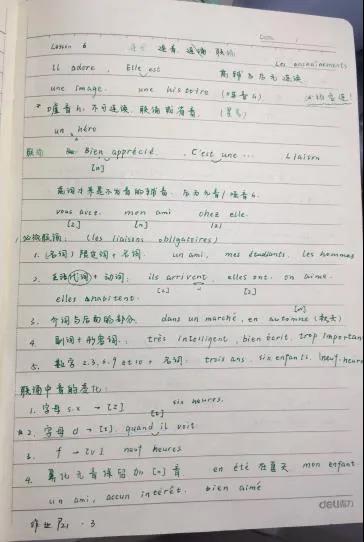 Date /
Lesson 6 连音 连诵 联诵
Les enchaînements
Il adore, Elle est 前辅与后元连读
une image. une histoire (哑音h) 必须连!
* 嘘音h, 不可连读, 联诵或省音.
un héro
联诵 Bien apprécié, C'est une ... Liaison
[n]
前词本来是不发音的辅音. 后为元音/哑音h.
vous avez. mon ami chez elle.
[z] [n] [z]
必须联诵: (les liaisons obligatoires)
1. (名词) 限定词 + 名词. un ami, mes étudiants, les hommes
2. 主语代词 + 动词: ils arrivent, elles ont, on aime.
[z] [z] [n]
elles habitent.
3. 介词与后面的部分. dans un marché, en automne (秋天)
4. 副词 + 形容词: très intelligent, bien écrit, trop important
5. 数字 2.3.6.9 et 10 + 名词. trois ans, six enfants, neuf heures
联诵中音的变化:
1. 字母 s.x → [z] six heures.
[z]
*2. 字母 d → [t]. quand il voit
3. f → [v] neuf heures
4. 鼻化元音保留加 [n] 音 en été 在夏天 mon enfant
un ami, aucun intérêt. bien aimé
作业 P21 . 3
deli